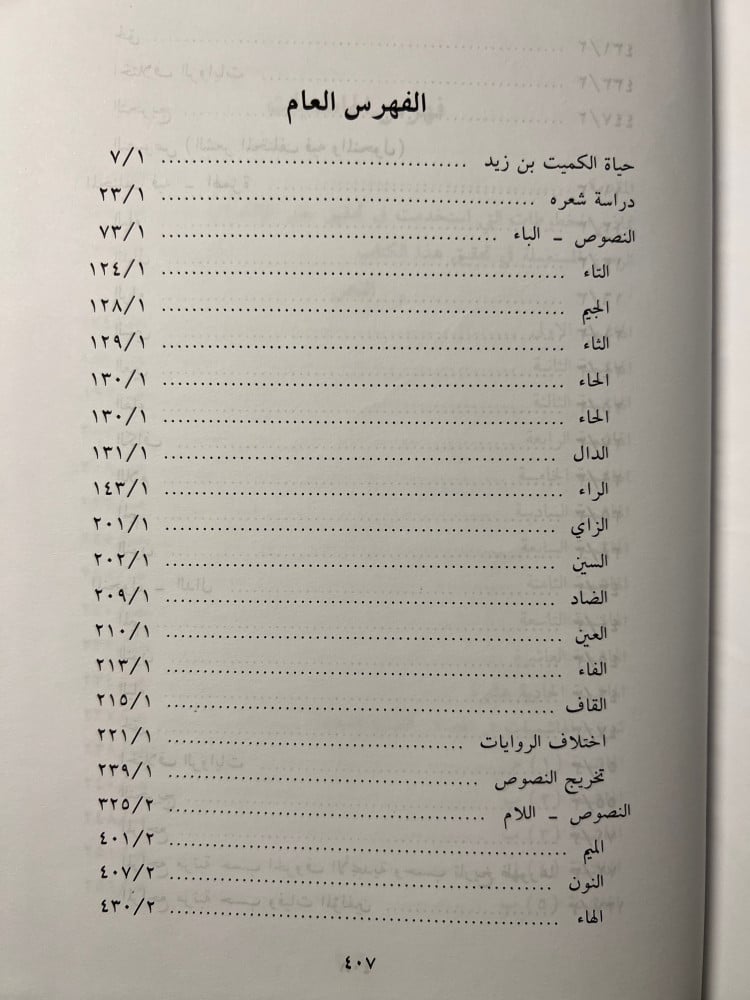 الفهرس العام
حياة الكميت بن زيد ........ ٧/١
دراسة شعره ........ ٢٣/١
النصوص – الباء ........ ٧٣/١
التاء ........ ١٢٤/١
الجيم ........ ١٢٨/١
الثاء ........ ١٢٩/١
الحاء ........ ١٣٠/١
الحاء ........ ١٣٠/١
الدال ........ ١٣١/١
الراء ........ ١٤٣/١
الزاي ........ ٢٠١/١
السين ........ ٢٠٢/١
الضاد ........ ٢٠٩/١
العين ........ ٢١٠/١
الفاء ........ ٢١٣/١
القاف ........ ٢١٥/١
اختلاف الروايات ........ ٢٢١/١
تخريج النصوص ........ ٢٣٩/١
النصوص – اللام ........ ٣٢٥/٢
الميم ........ ٤٠١/٢
النون ........ ٤٠٧/٢
الهاء ........ ٤٣٠/٢
٤٠٧